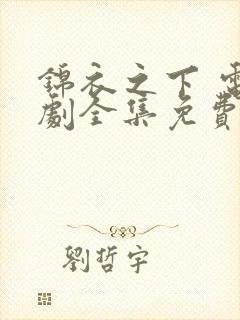 錦衣之下 電
劇全集免費
劉哲宇